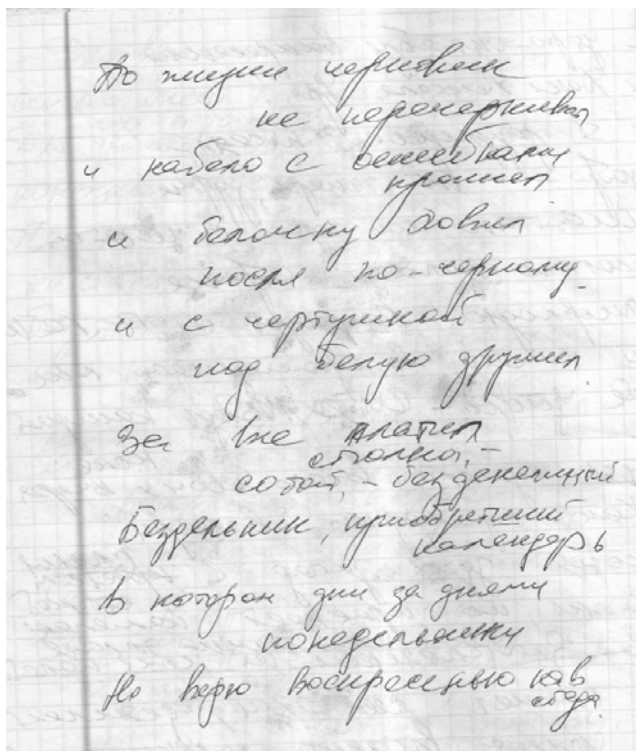 По жизни черновик
не перечеркивал
и набело с ошибками
прошел
и белочку ловил
после по-черному
и с чертушкой
под белую дружил.
За все платил
сполна, –
собой, – безденежный
Бездельник, приобретший
календарь
В котором дни за днями
понедельники
Но верю воскресенью как
всегда.